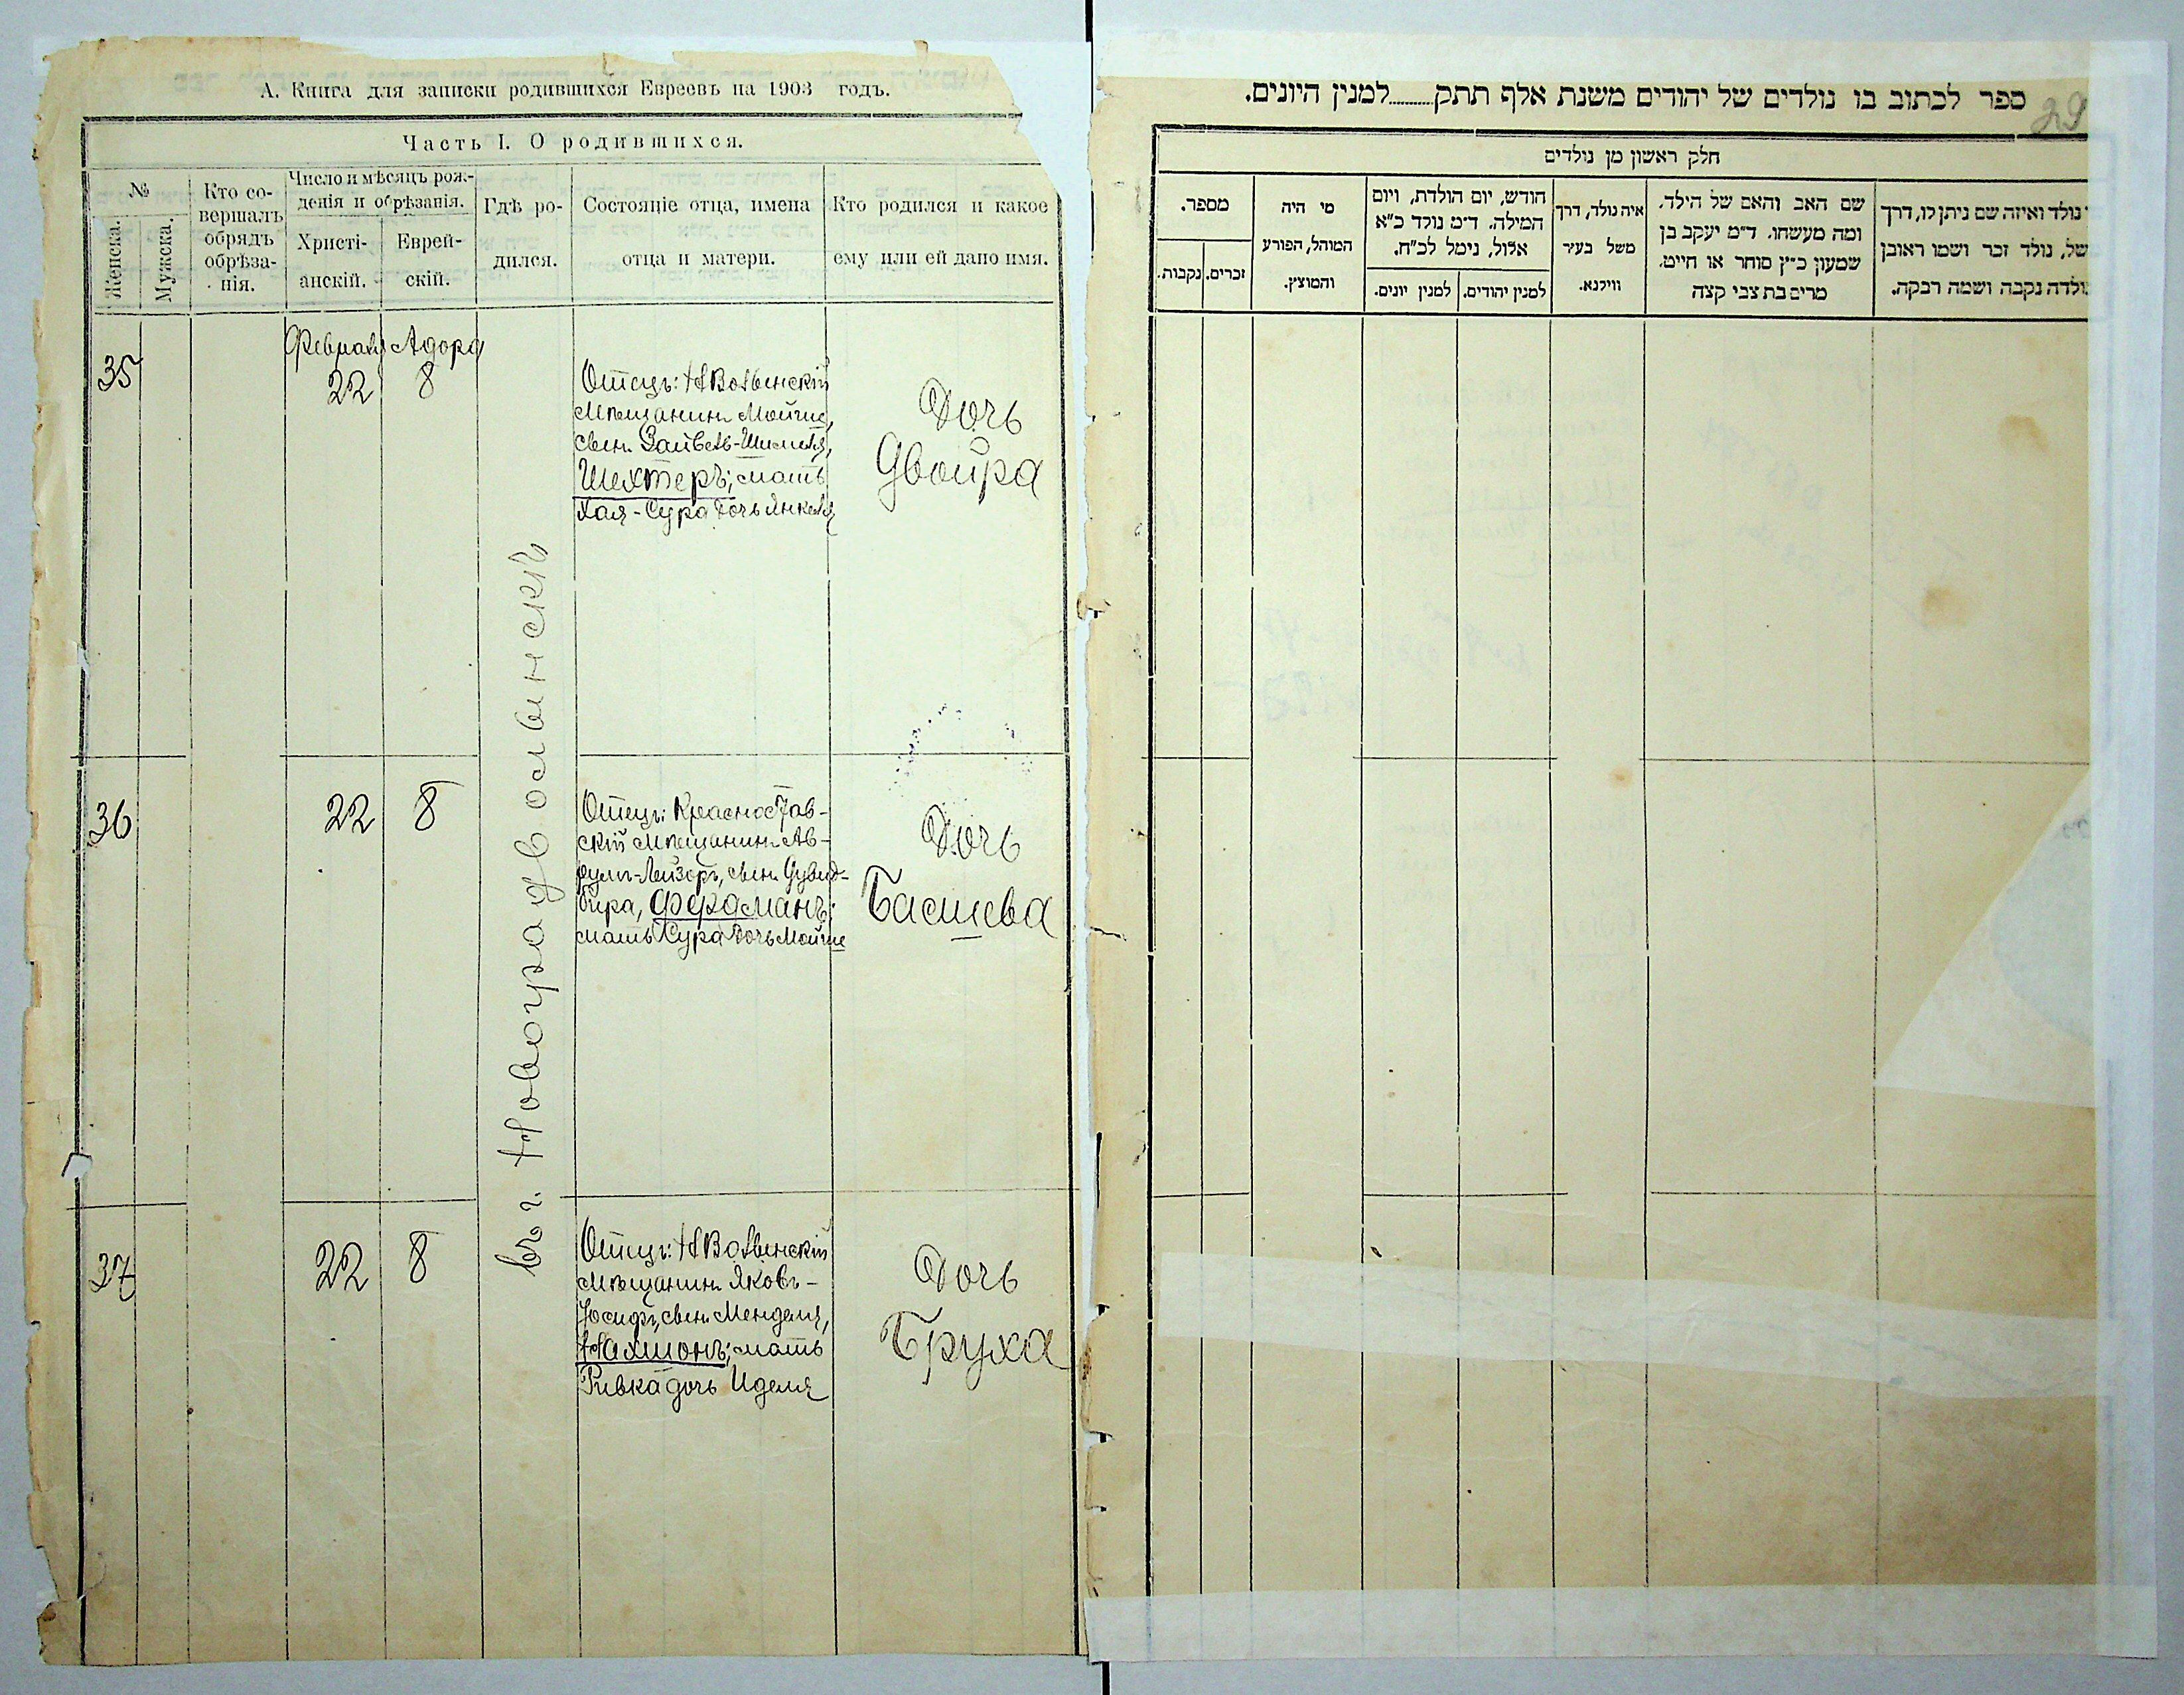 А. Книга для записки родившихся Евреевъ на 1903 годъ.
Часть I. О родившихся.
№
Женска.
Мужска.
Кто со-
вершалъ
обрядъ
обрѣза-
нія.
Число и мѣсяцъ рож-
денія и обрѣзанія.
Христі-
анскій.
Еврей-
скій.
Гдѣ ро-
дился.
Состояніе отца, имена
отца и матери.
Кто родился и какое
ему или ей дано имя.
Февраля Адора
35
22 8
Отецъ: НВолынскій
мѣщанинъ Мойше,
сынъ Зайвель-Шмиля,
Шехтеръ; мать
Хая-Сура дочь Янкеля
Дочь
Двойра
въ г. Новоградволынскѣ
36
22 8
Отецъ: Красностав-
скій мѣщанинъ Ав-
румъ-Лейзоръ, сынъ Дувид-
бира, Фурманъ;
мать Сура дочь Мойше
Дочь
Басшева
37
22 8
Отецъ: НВолынскій
мѣщанинъ Яковъ-
Юсифъ, сынъ Менделя,
Нахшонъ; мать
Ривка дочь Иделя
Дочь
Бруха
ספר לכתוב בו נולדים של יהודים משנת אלף תתק..........למנין היונים.
29
חלק ראשון מן נולדים
מספר.
זכרים.
נקבות.
מי היה
המוהל, הפורע
והמוצץ.
חודש, יום הולדת, ויום
המילה. ד״מ נולד כ״א
אלול, נימל לכ״ח.
למנין יונים.
למנין יהודים.
איה נולד, דרך
משל בעיר
ווילנא.
שם האב והאם של הילד.
ומה מעשהו. ד״מ יעקב בן
שמעון כ״ץ סוחר או חייט.
מרים בת צבי קצה
נולד ואיזה שם ניתן לו, דרך
של, נולד זכר ושמו ראובן
ולדה נקבה ושמה רבקה.